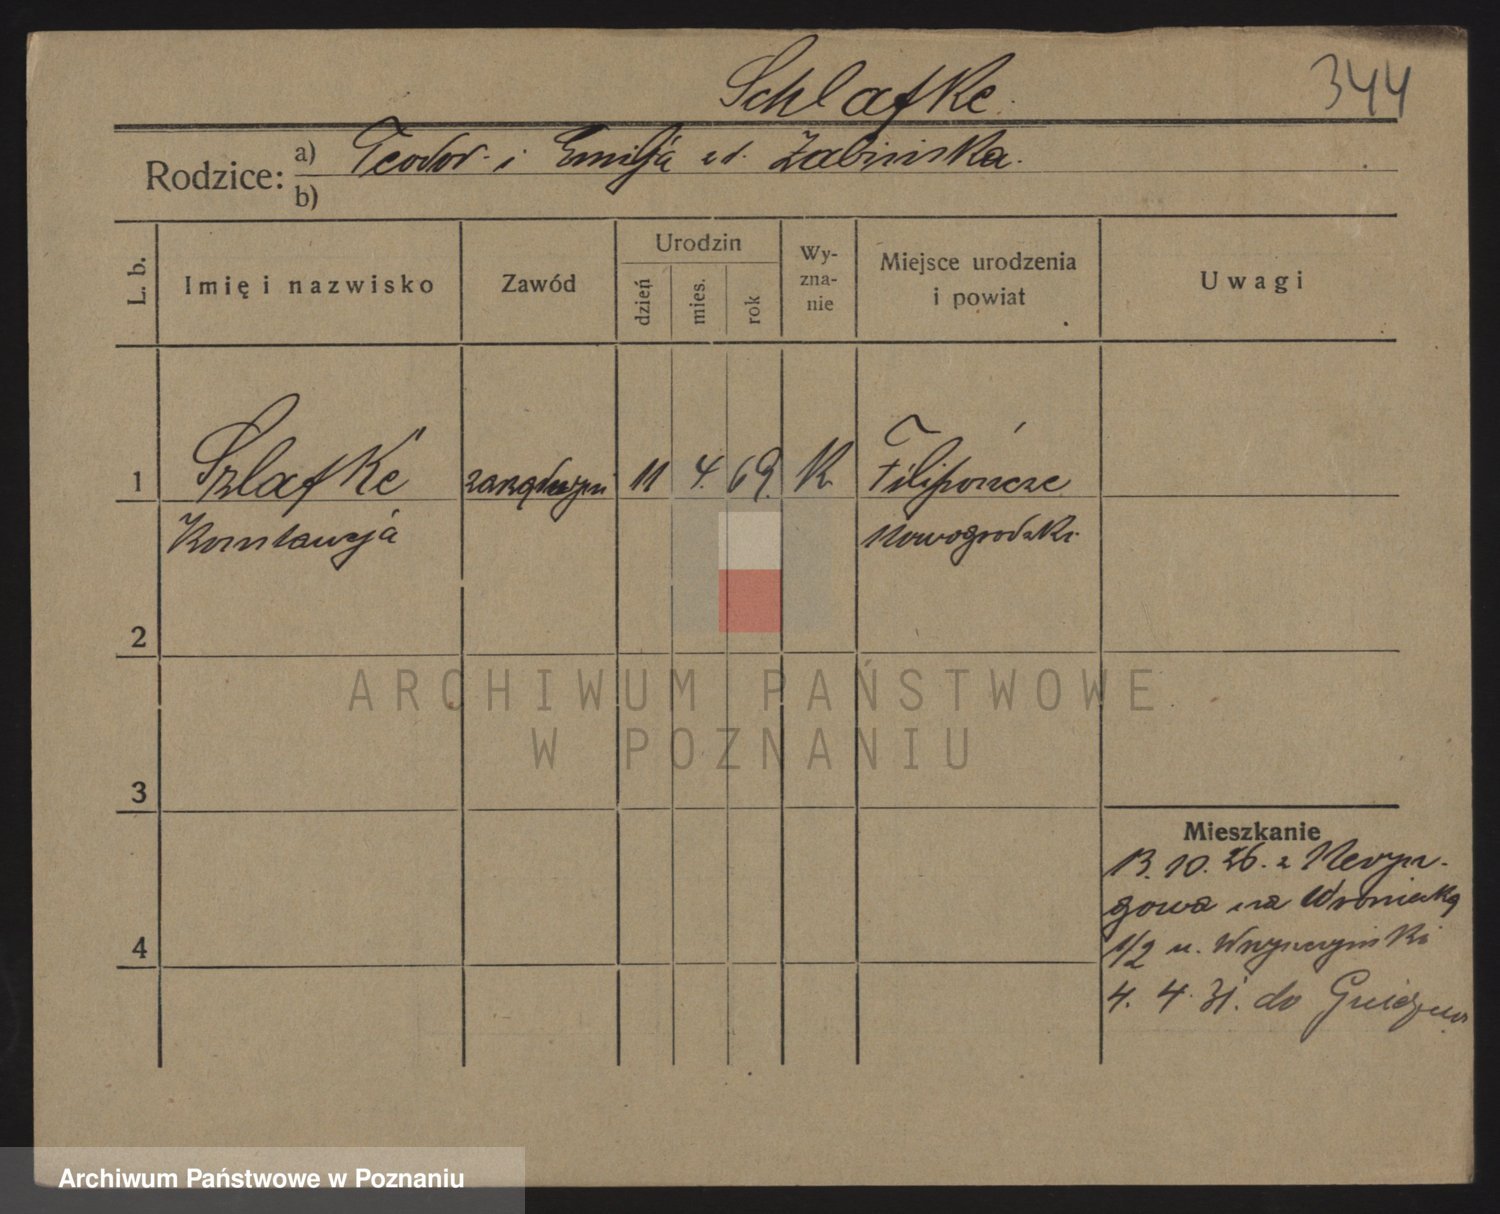 344
Schlafke
Rodzice: a) Teodor i Emilja z d. Żabińska.
b)
L. b.
Imię i nazwisko
Zawód
Urodzin
dzień
mies.
rok
Wy-
zna-
nie
Miejsce urodzenia
i powiat
Uwagi
1 Szlafke 11 4. 69. K. Filipończe
Konstancja Nowogrodzki
2
3
4
Mieszkanie
13. 10. 26. z
na Wroniecką
1/2 u.
4. 4. 31. do Gniezna
ARCHIWUM PAŃSTWOWE
W POZNANIU
Archiwum Państwowe w Poznaniu